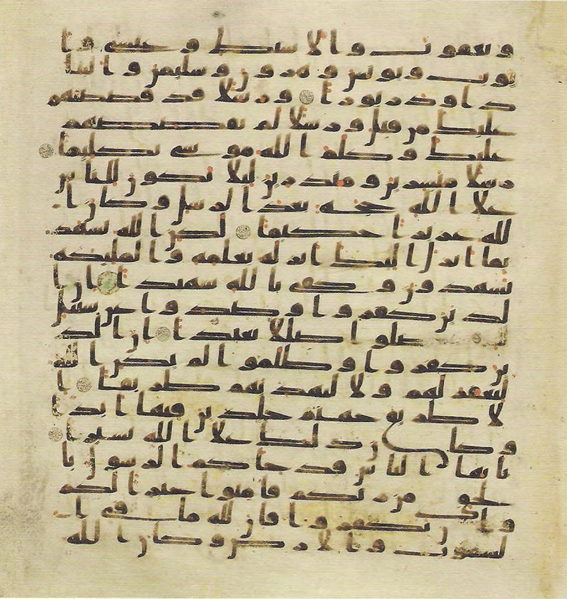 ويعقوب والاسبط وعيسى وا
يوب ويونس وهرون وسليمن واتينا
داود زبورا ورسلا قد قصصنهم
عليك من قبل ورسلا لم نقصصهم
عليك وكلم الله موسى تكليما
رسلا مبشرين ومنذرين ليلا يكون للناس
علا الله حجه بعد الرسل وكان ا
لله عزيزا حكيما لكن الله يشهد
بما انزل اليك انزله بعلمه والمليكه
يشهدون وكفى بالله شهيدا ان ا
لذين كفروا وصدوا عن سبيل
الله قد ضلوا ضللا بعيدا ان الذ
ين كفروا وظلموا لم يكن الله
ليغفر لهم ولا ليهديهم طريقا ا
لا طريق جهنم خلدين فيها ابدا
وكان ذلك علا الله يسيرا
يايها الناس قد جاكم الرسول با
لحق من ربكم فامنوا خيرا لكم
وان تكفروا فان لله ما في ا
لسموت والارض وكان الله